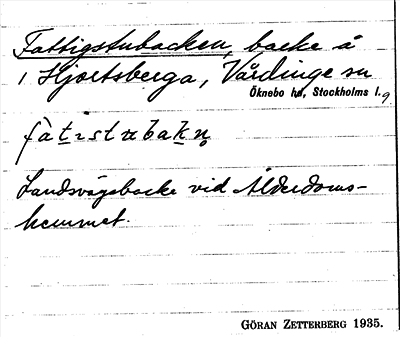 Fattigstubacken, backe å
1 Hjortsberga, Vårdinge sn
Öknebo hd, Stockholms l.
fàt̲ɪstubak̲n̥
Landsvägsbacke vid Ålderdoms-
hemmet.
GÖRAN ZETTERBERG 1935.